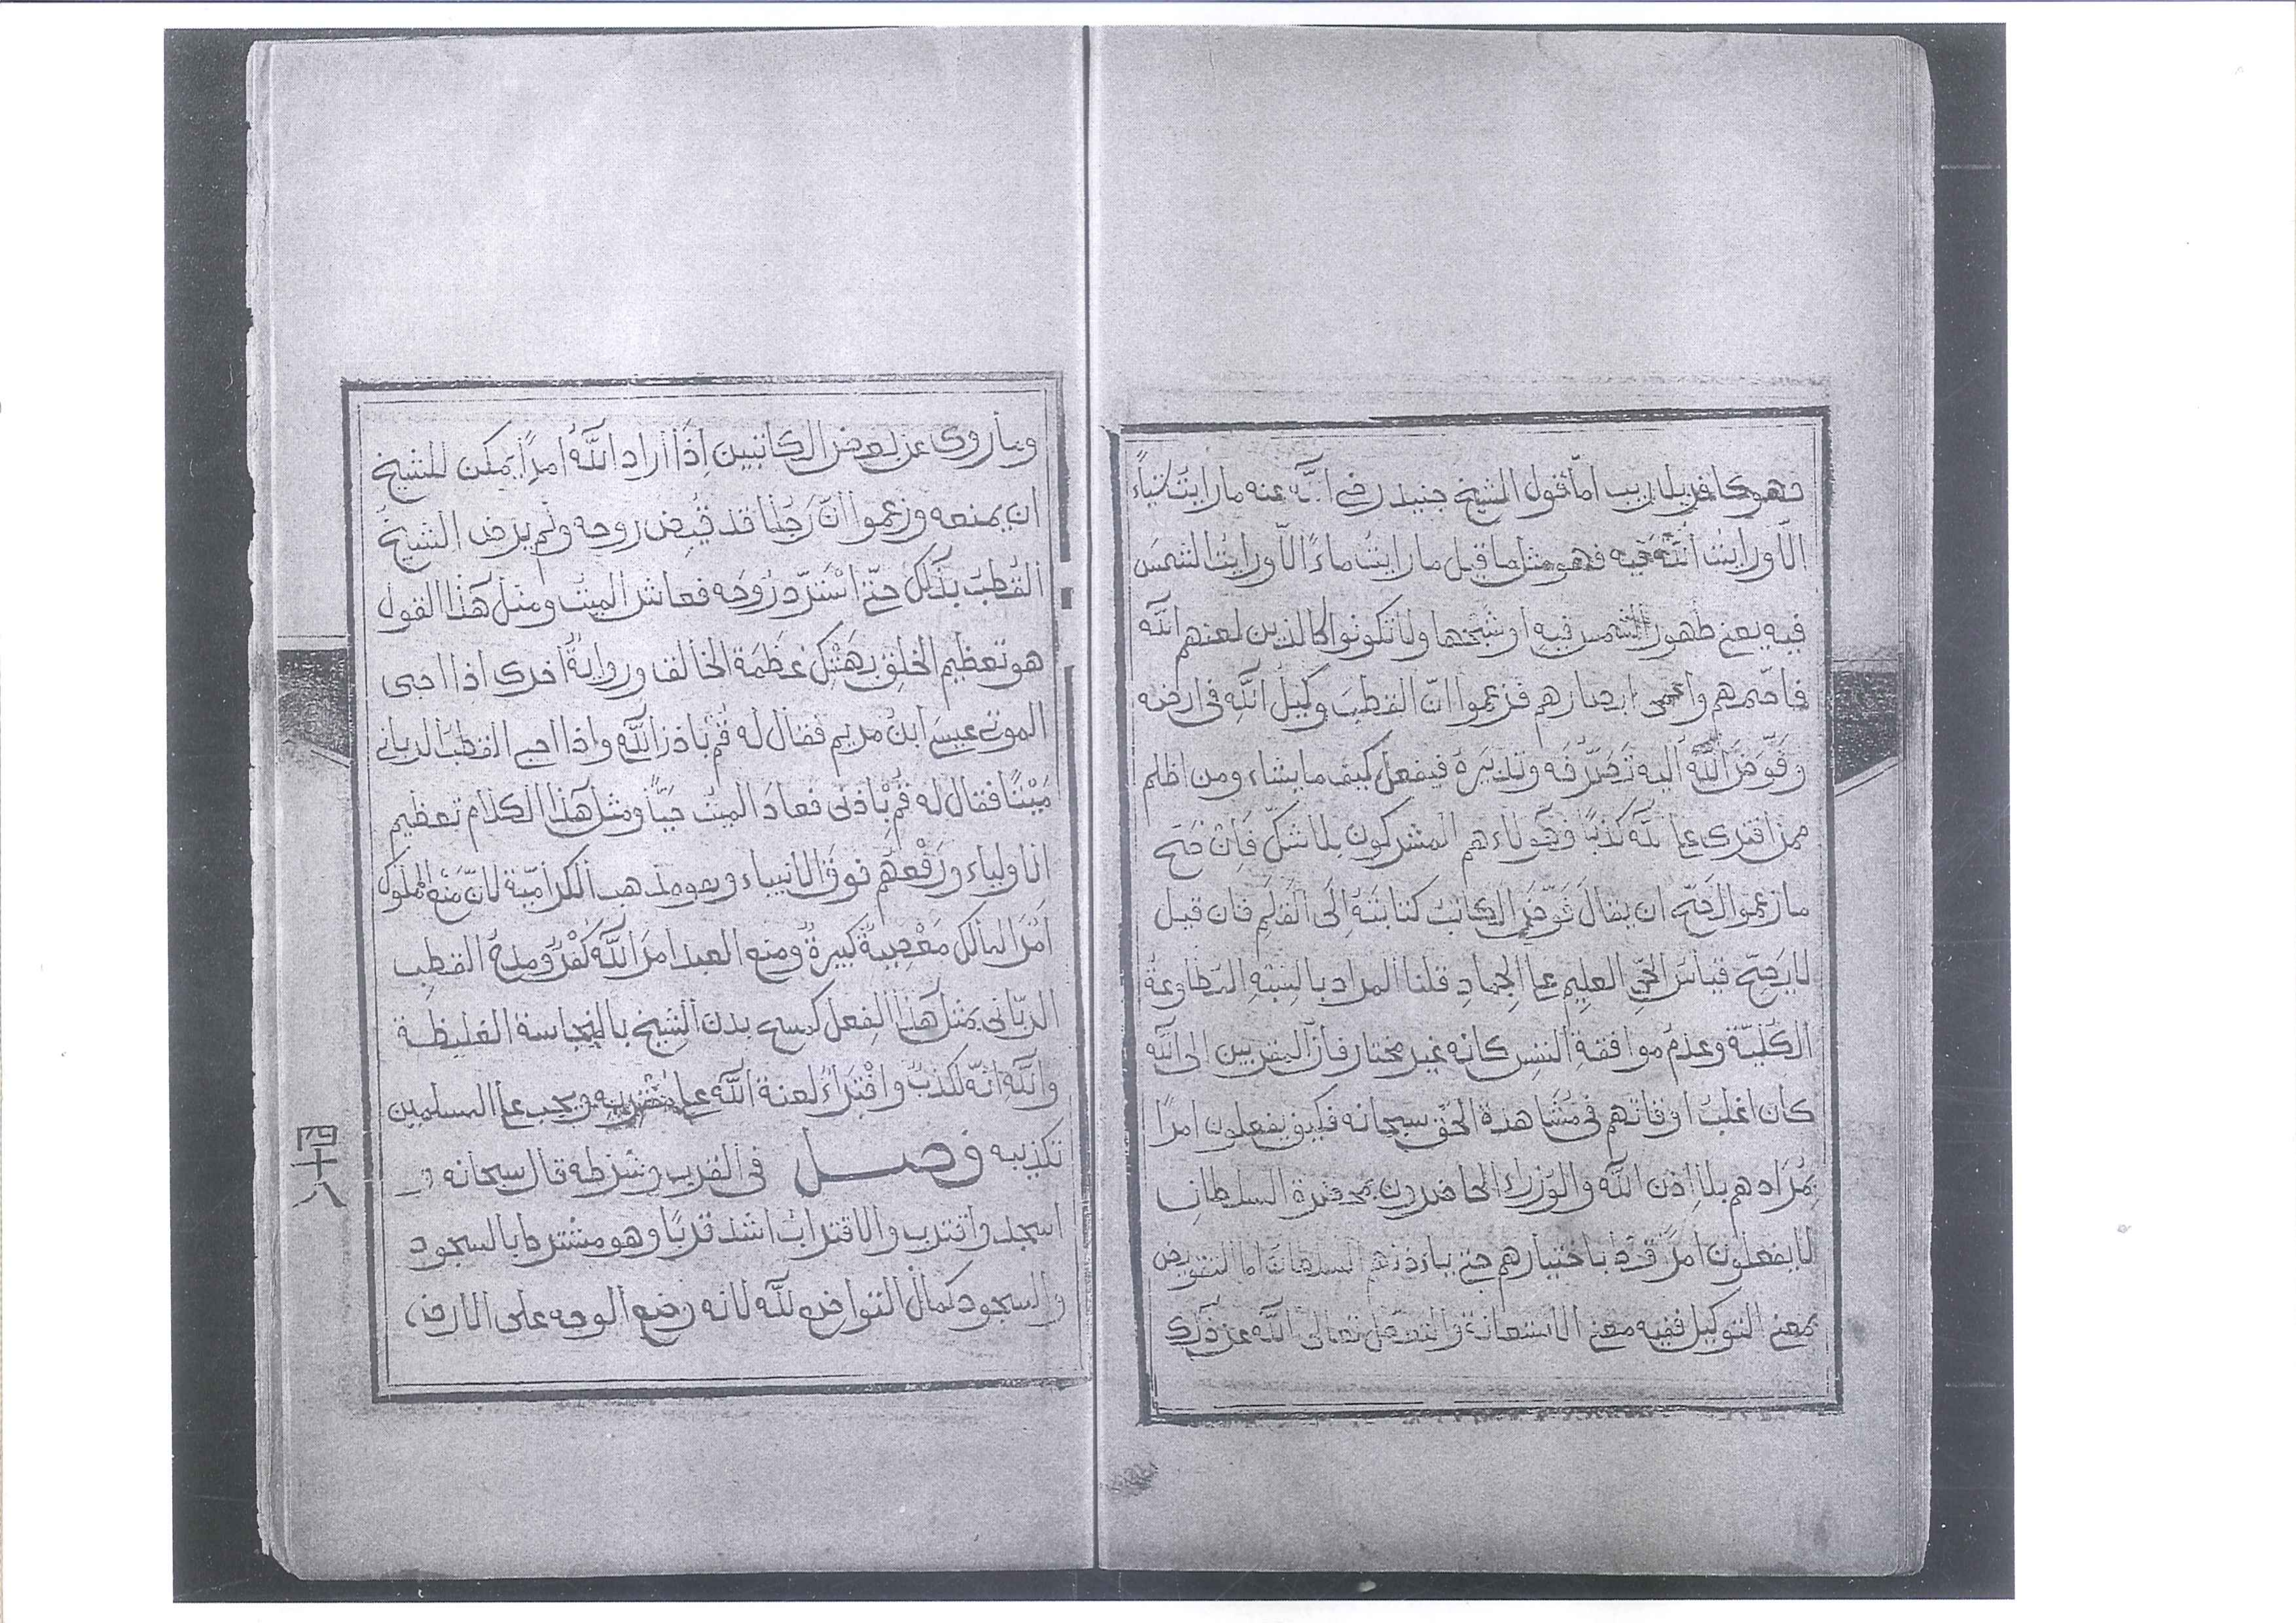 فهو كافر بلا ريب امّا قول الشيخ جنيد رضى الله عنه ما رايت شياءً
الّا ورايتُ اللّٰه فيه فهو مثل ما قيل ما رايتُ ماءً الّا ورايتُ الشمسَ
فيه يعنى ظهور الشمس فيه او شبحها ولا تكونوا كالذين لعنهم اللّٰه
فاصّمهم واعمى ابصارهم فزعموا انّ القطبَ وكيلُ اللّٰهِ فى ارضه
وفَوّضَ اللّٰهُ اليه تَصَرُّفَه وتدبيرَهُ فيفعل كيف ما يشاء ومن اظلم
ممن افترى على اللّٰه كذبًا فهؤلاء هم المشركون بلا شكّ فَاِن صَحّ
ما زعموا لَصَحّ ان يقالَ فَوّضَ الكاتبُ كتابتَهُ اِلَى القَلَمِ فان قيل
لا يَصِحّ قياسَ الحَىِّ العليمِ على الجمادِ قلنا المراد بالنسبةِ المطاوعةُ
الكُلِيّة وعدمُ موافقة النفس كانه غير مختار فانّ المقربين الى اللّٰه
كان اغلبُ اوقاتهم فى مُشَاهدة الحَقّ سبحانه فكيف يفعلون امرًا
بمُرَادهم بلا اِذن اللّٰه والوزراءُ الحاضرون بحضرة السلطانِ
لا يفعلون امرًا قطُّ باختيارهم حتى ياءذنهم السلطانَ امّا التفويض
بمعنى التوكيل ففيه معنى الاستعانة تعالى اللّٰه عن ذٰلك
وما روى عن بعض الكاتبين اِذَا اراد اللّٰهُ امرًا يمكن للشيخ
ان يمنعه وزعموا انّ رَجُلا قد قُبِض روحه ولم يرض الشيخُ
القُطبُ بذٰلك حتّى اسْتَردّ رُوحَه فعاش الميتُ ومثل هٰذا القول
هو تعظيم الخلقِ بهَتْكِ عَظَمَة الخالق وروايةٌ اخرى اذا احيى
الموتى عيسىَ ابنُ مريم فقال له قُمْ باذن اللّٰهِ واذا احيى القطبُ الربانى
مَيْتًا فقال له قُمْ بْاِذنى فعادَ الميتُ حَيّاً ومثل هٰذا الكلام تعظيم
الاولياء ورَفْعُهم فَوقَ الانبياء وهو مذهب الكرامّية لانّ مَنْعَ المملوك
اَمْرَ المالك مَعْصِيةٌ كبيرةٌ ومنع العبد امرَ اللّٰه كُفْرٌ ومدحُ القطبِ
الربّانى بمثل هٰذا الفعل كمسح بدن الشيخ بالنجاسة الغليظة
واللّٰه انّه لكذبٌ وافْتراءٌ لعنة اللّٰه على ويجب على المسلمين
تكذيبه فصل فى القرب وشرطه قال سبحانه و
اسجد واقترب والاقترابُ اشد قربًا وهو مشترط بالسجود
والسجود كمالُ التواضع للّٰه لانه وضع الوجه على الارض
四十八